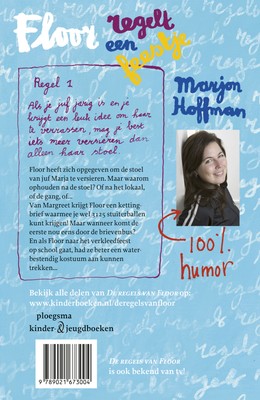 Floor regelt
een
feestje
Marjon
Hoffman
Regel 1
Als je juf jarig is en je
krijgt een leuk idee om haar
te verrassen, mag je best
iets meer versieren dan
alleen haar stoel.
Floor heeft zich opgegeven om de stoel
van juf Maria te versieren. Maar waarom
ophouden na de stoel? Of na het lokaal,
of de gang, of...
Van Margreet krijgt Floor een ketting-
brief waarmee je wel 3125 stuiterballen
kunt krijgen! Maar wanneer komt de
eerste nou eens door de brievenbus?
En als Floor naar het verkleedfeest
op school gaat, had ze beter een water-
bestendig kostuum aan kunnen
trekken...
100%
humor
Bekijk alle delen van De regels van Floor op:
www.kinderboeken.nl/deregelsvanfloor
ploegsma
kinder- & jeugdboeken
9 789021 673004
De regels van Floor
is ook bekend van tv!